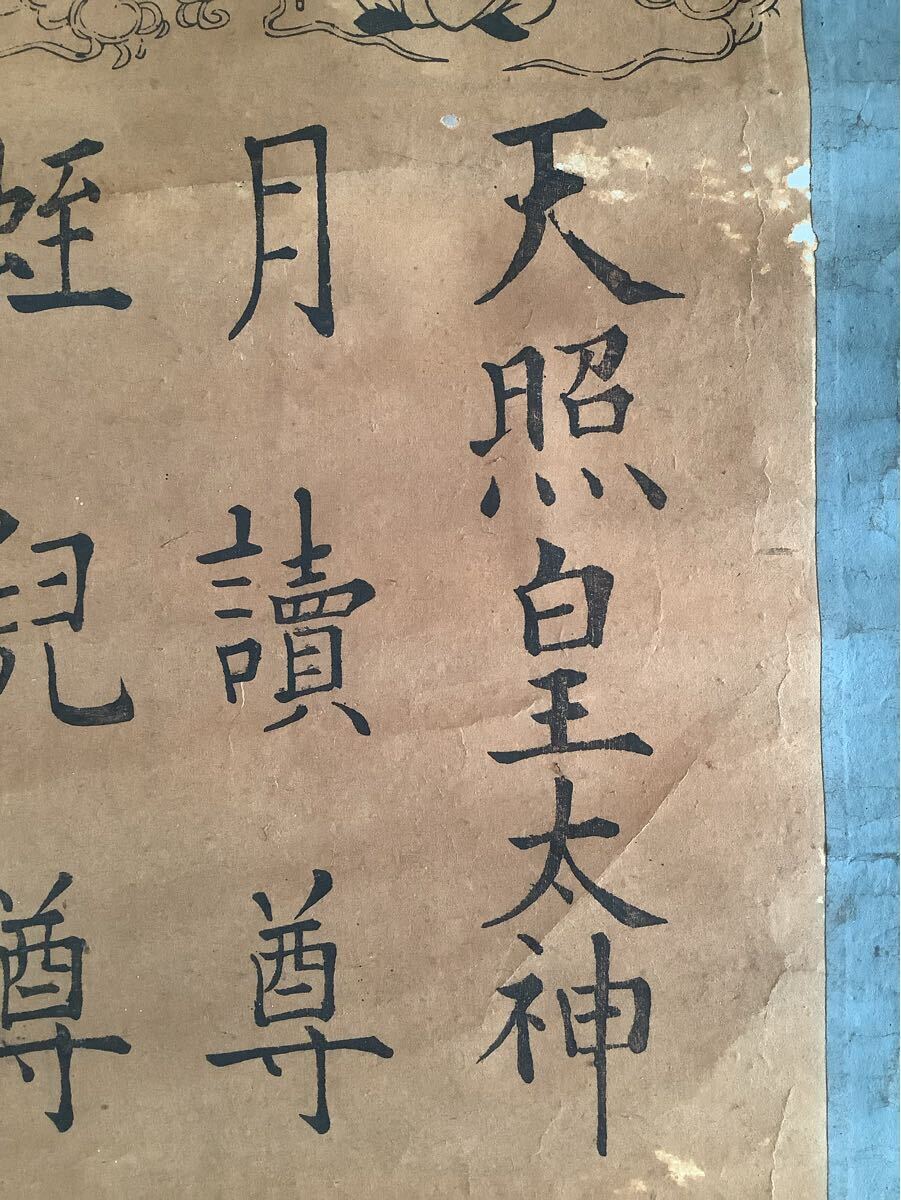 天照皇太神
月讀尊
蛭兒尊